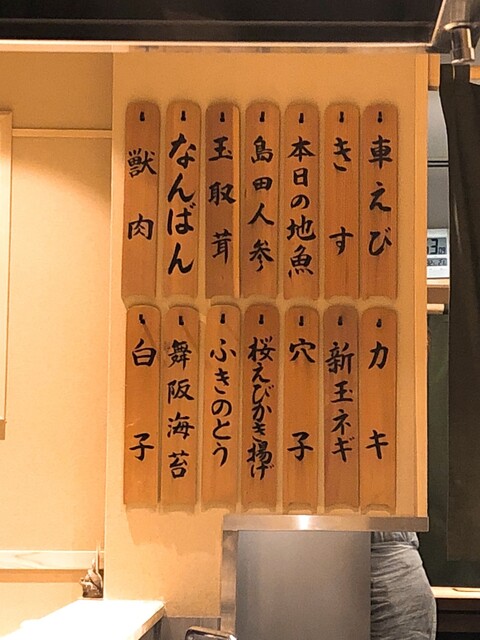 車えび
きす
本日の地魚
島田人参
玉取茸
なんばん
獣肉
カキ
新玉ネギ
穴子
桜えびかき揚げ
ふきのとう
舞阪海苔
白子